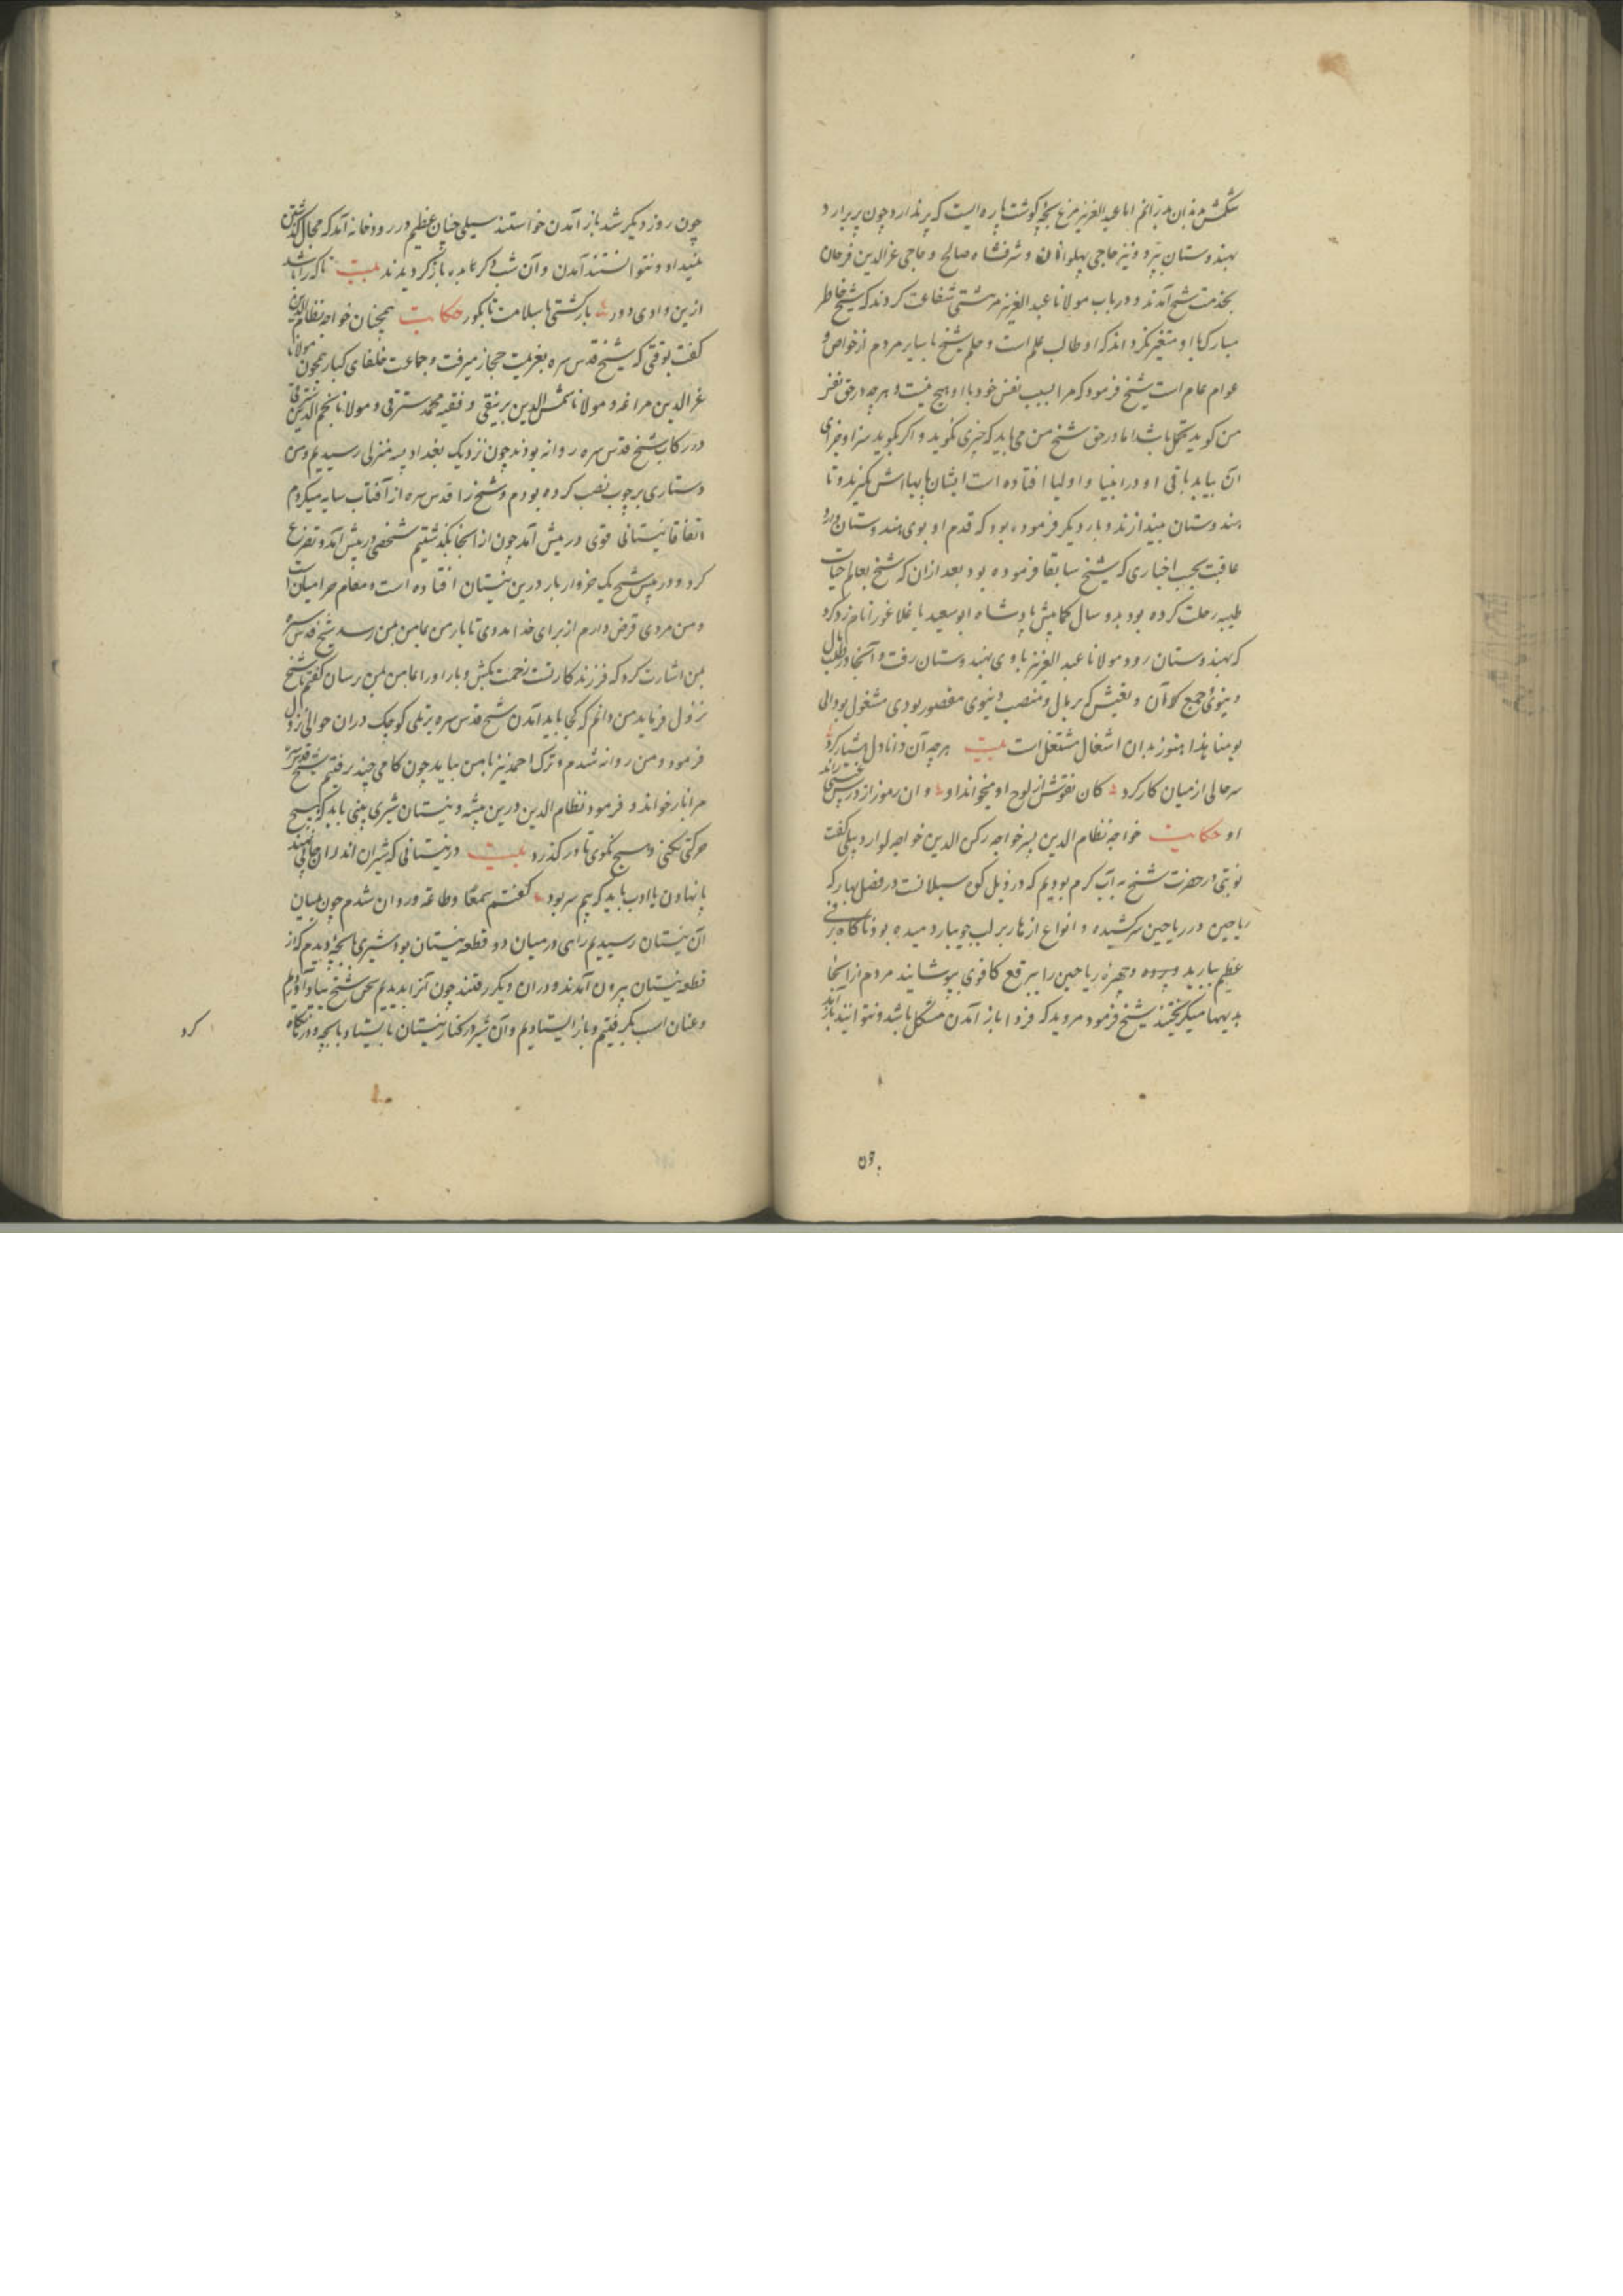 شکمش بدان بدرانم اما عبدالعزیز مرغ بچهٔ کوشت پاره ایست که پر ندارد چون پر برارد
بهندوستان پرد و نیز حاجی پهلوانان و شرفشاه صالح و حاجی عزالدین فرحان
بخدمت شیخ آمدند و درباب مولانا عبدالعزیز مرشتی شفاعت کردند که شیخ خاطر
مبارک با او متغیر نکرداند که او طالب علم است و حلم شیخ با سایر مردم از خواص و
عوام عام است شیخ فرمود که مرا بسبب نفس خود با او هیچ نیست و هرچه در حق نفس
من کوید تحمل باشد اما در حق شیخ من می باید که چیزی نکوید و اکر بکوید سزا و جزای
آن بیابد باقی او در انبیا و اولیا افتاده است ایشان پاهاش بکیرند و تا
هندوستان بیندازند و بار دیکر فرموده بود که قدم او بوی هندوستان دارد
عاقبت بحسب اخباری که شیخ سابقا فرموده بود بعد ازان که شیخ بعالم حیات
طیبه رحلت کرده بود بدو سال کمابیش پادشاه ابوسعید یا غلاغور را نامزد کرد
که بهندوستان رود مولانا عبدالعزیز با وی بهندوستان رفت و آنجا در طلب مال
دینوی و جمع کردن و بغیش که بر مال و منصب دینوی مقصور بودی مشغول بود الی
یومنا هذا هنوز بدان اشغال مشتغل است بیت هرچه آن دانا دل هشیار کرد
سرحالی از میان کار کرد کان نقوش از لوح او میخواند او و ان رموز از درس غیبی راند
او حکایت خواجه نظام الدین پسر خواجه رکن الدین خواجه لو اردبیلی کفت
نوبتی در حضرت شیخ به آب کرم بودیم که در ذیل کوه سبلانست در فصل بهار که
ریاحین در ریاحین سرکشیده و انواع ازهار بر لب جویبار دمیده بود ناکاه برفی
عظیم ببارید و چهرهٔ ریاحین را ببرقع کافوری بپوشانید مردم از انجا
بدیهها میکریختند شیخ فرمود مروید که فردا باز آمدن مشکل باشد و نتوانید باز آید
چون
چون روز دیکر شد باز آمدن خواستند سیلی چنان عظیم در رودخانه آمد که مجال کذشتن
نمیداد و نتوانستند آمدن و آن شب دکر باده باز کردیدند بیت تا که را باشد
ازین وادی دور بار کشتی با سلامت تا بکور حکایت همچنان خواجه نظام الدین
کفت بوقتی که شیخ قدس سره بعزیمت حجاز میرفت و جماعت خلفای کبار همچون مولانا
عزالدین مراغه و مولانا شمس الدین برنیقی و فقیه محمد سترقی و مولانا نجم الدین سترقی
در رکاب شیخ قدس سره روانه بودند چون نزدیک بغداد به منزلی رسیدیم و من
دستاری بر چوب نصب کرده بودم و شیخ را قدس سره از آفتاب سایه میکردم
اتفاقا نیستانی قوی در پیش آمد چون از انجا بکذشتیم شخصی در پیش آمد و تضرع
کرد و در پیش شیخ یک خروار بار درین نیستان افتاده است و مقام حرامیان است
و من مردی قرض دارم از برای خدا مددی تا بار من بمامن من رسد شیخ قدس سره
بمن اشارت کرد که فرزند کار تست زحمت بکش و بار او را بمامن من رسان کفتم تا شیخ
نزول فرماید من دانم که کجا باید آمدن شیخ قدس سره بر تلی کوچک دران حوالی نزول
فرمود و من روانه شدم و ترک احمد نیز با من بیامد چون کامی چند رفتیم شیخ قدس سره
مرا باز خواند و فرمود نظام الدین درین بیشه و نیستان شیری بینی باید که هیچ
حرکتی نکنی و هیچ نکوی تا در کذرد بیت در نیستانی که شیران اندران جایی نهند
پا نهادن با ادب باید که بیم سر بود کفتم سمعا و طاعه و روان شدم چون بمیان
آن نیستان رسیدیم راهی در میان دو قطعه نیستان بود شیری با بچهٔ دیدم که از
قطعه نیستان بیرون آمدند و دران دیکر رفتند چون آنرا بدیدیم سخن شیخ بیاد آوردم
و عنان اسب بکرفتیم و باز ایستادیم و آن شیر در کنار نیستان بایستاد با بچه و در ما نکاه
کرد